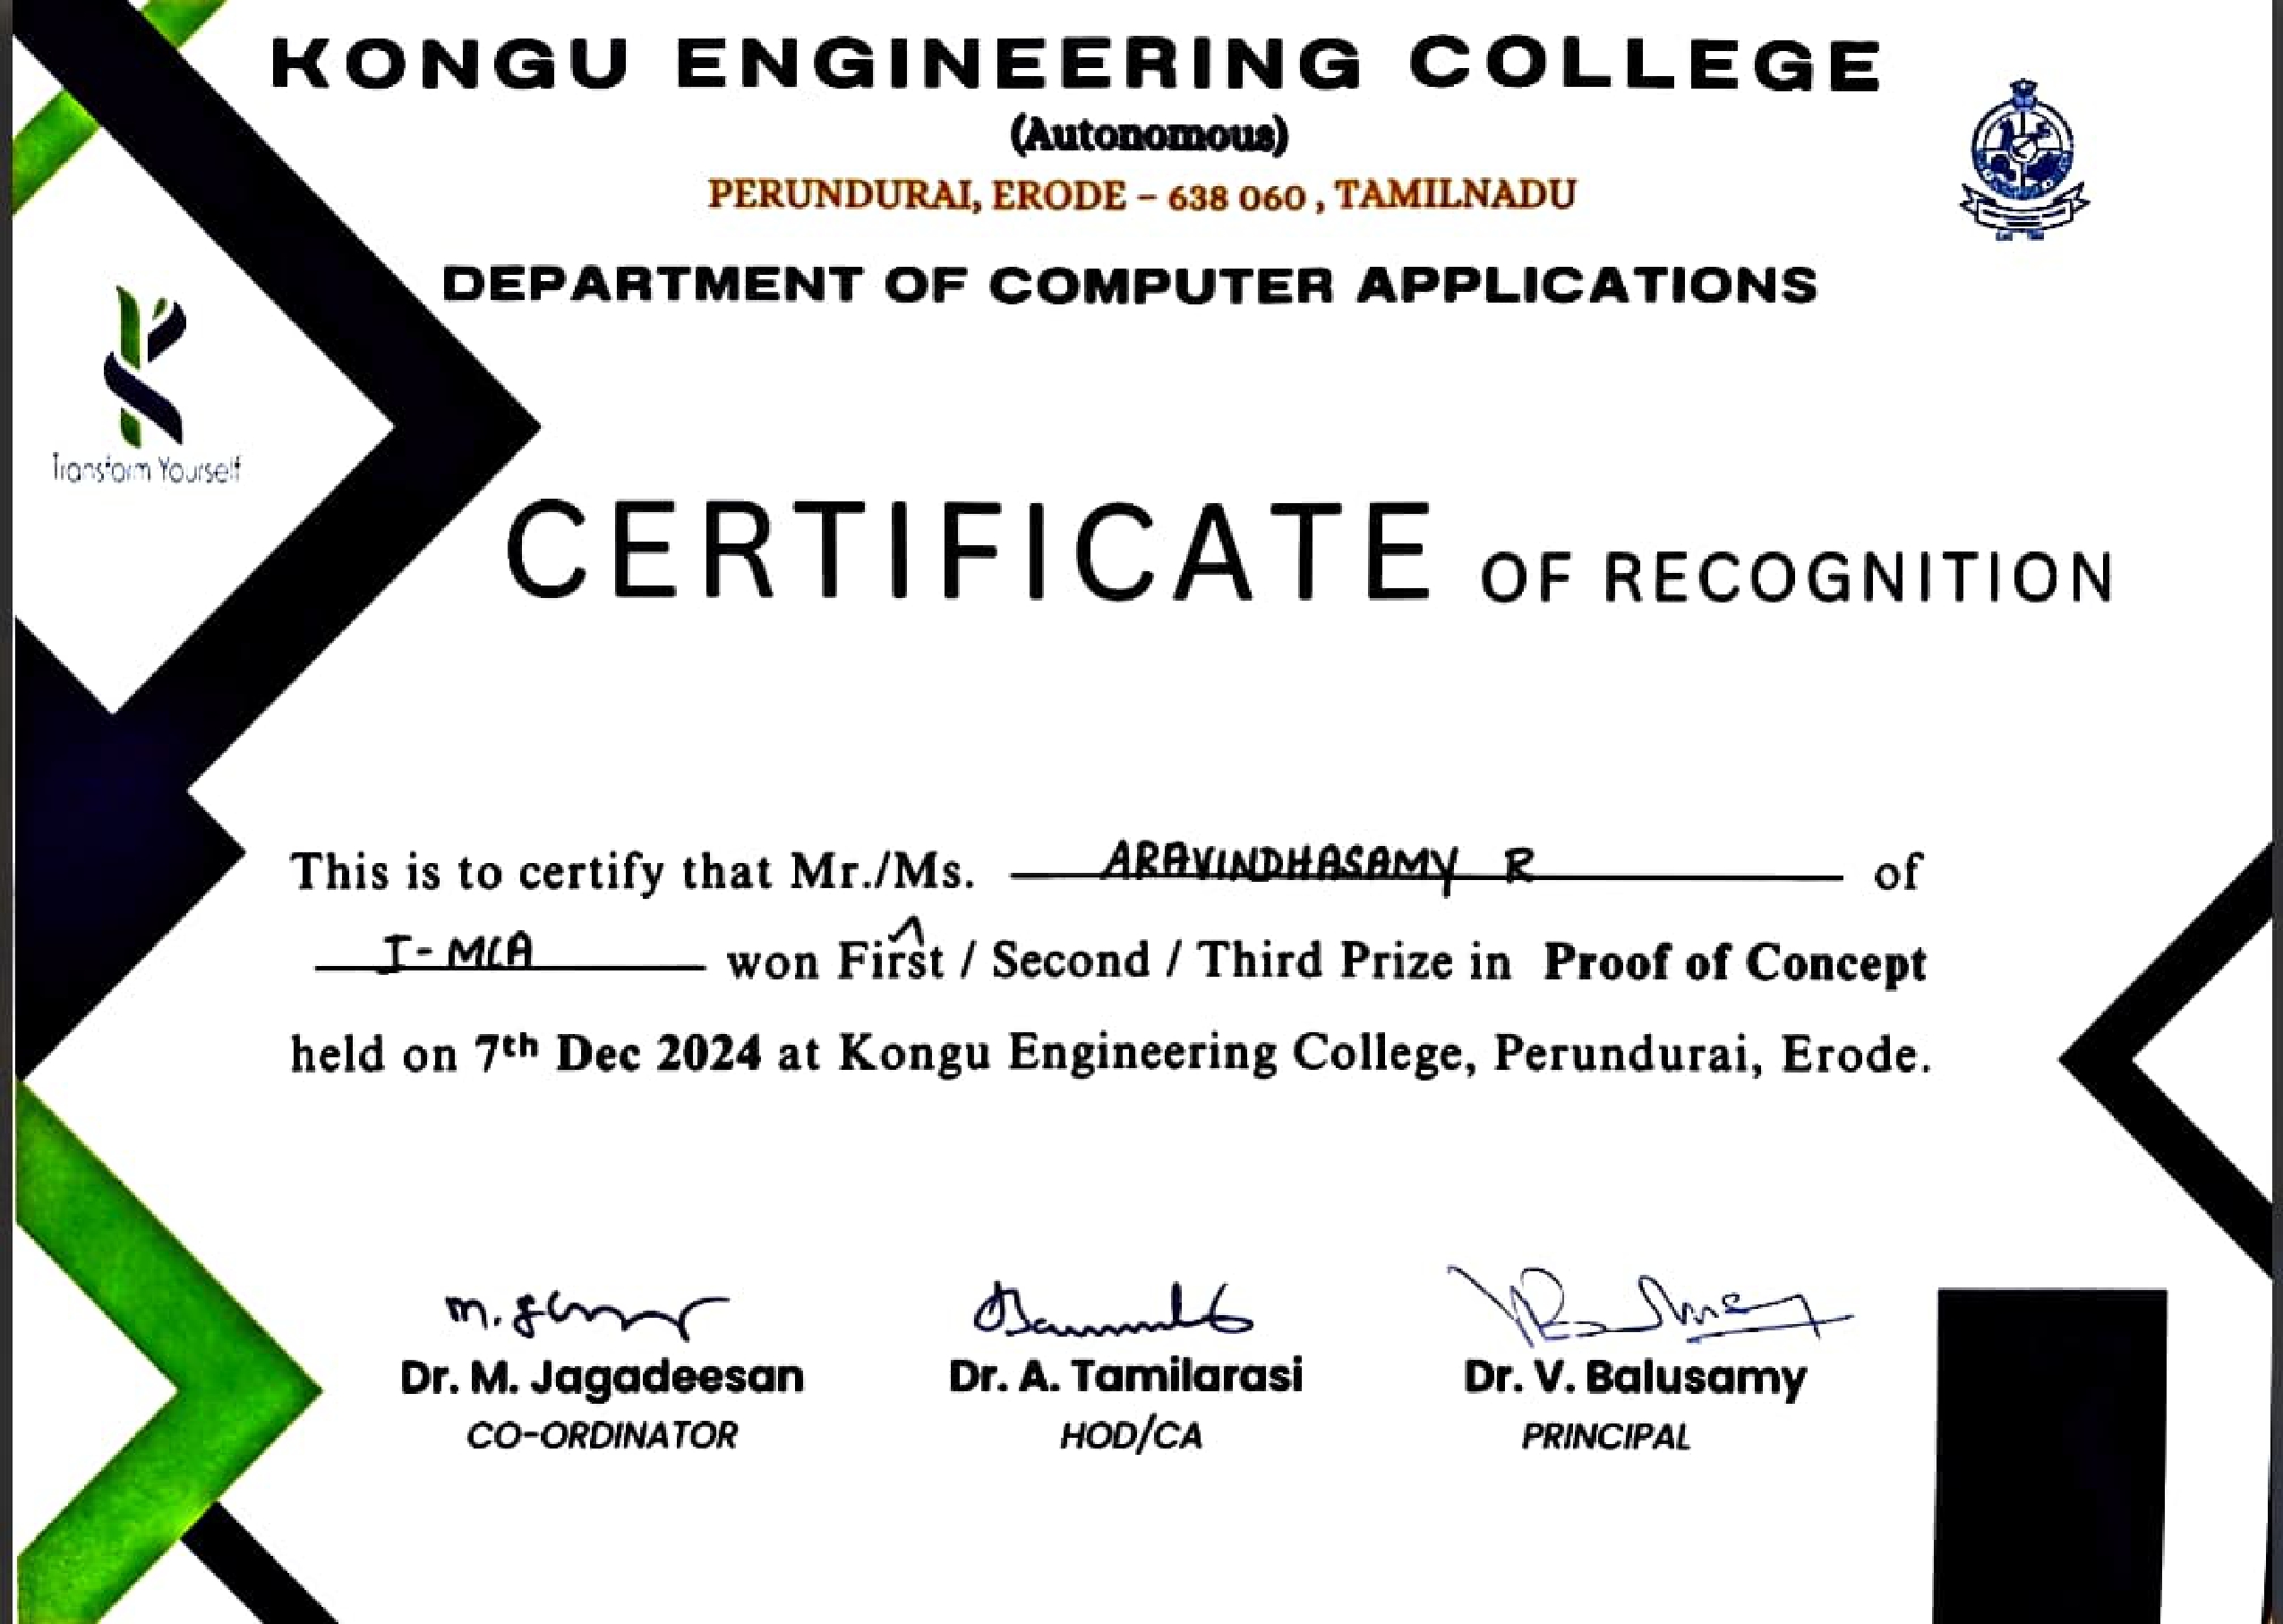 KONGU ENGINEERING COLLEGE
(Autonomous)
PERUNDURAI, ERODE – 638 060 , TAMILNADU
DEPARTMENT OF COMPUTER APPLICATIONS
Transform Yourself
CERTIFICATE OF RECOGNITION
This is to certify that Mr./Ms. ARAVINDHASAMY R of
I - MCA won First / Second / Third Prize in Proof of Concept
held on 7th Dec 2024 at Kongu Engineering College, Perundurai, Erode.
Dr. M. Jagadeesan Dr. A. Tamilarasi Dr. V. Balusamy
CO-ORDINATOR HOD/CA PRINCIPAL